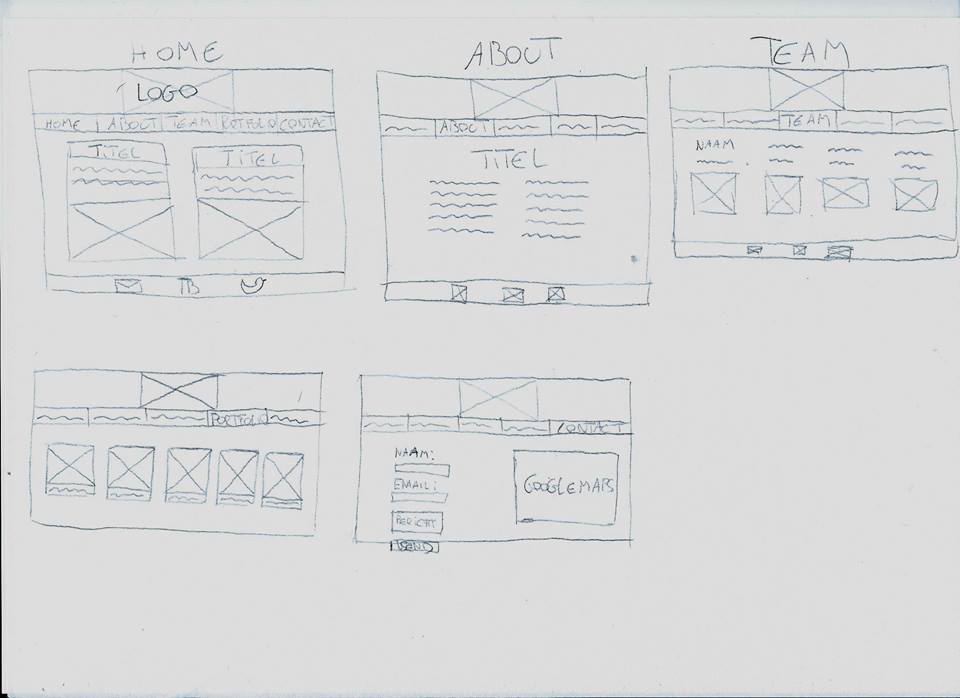 HOME
LOGO
HOME ABOUT TEAM PORTFOLIO CONTACT
TITEL TITEL
ABOUT
ABOUT
TITEL
TEAM
TEAM
NAAM
PORTFOLIO
CONTACT
NAAM:
EMAIL:
BERICHT
SEND
GOOGLE MAPS